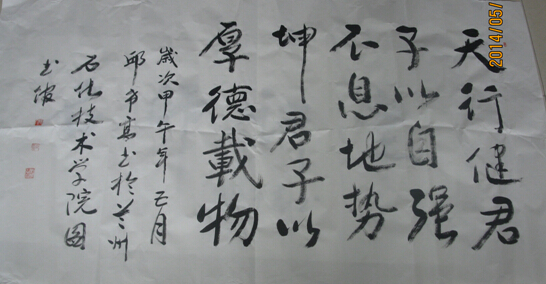 天行健君
子以自强
不息地势
坤君子以
厚德載物
歲次甲午年正月
邱希寓书於兰州
石化技术学院图
书馆
2014/05/